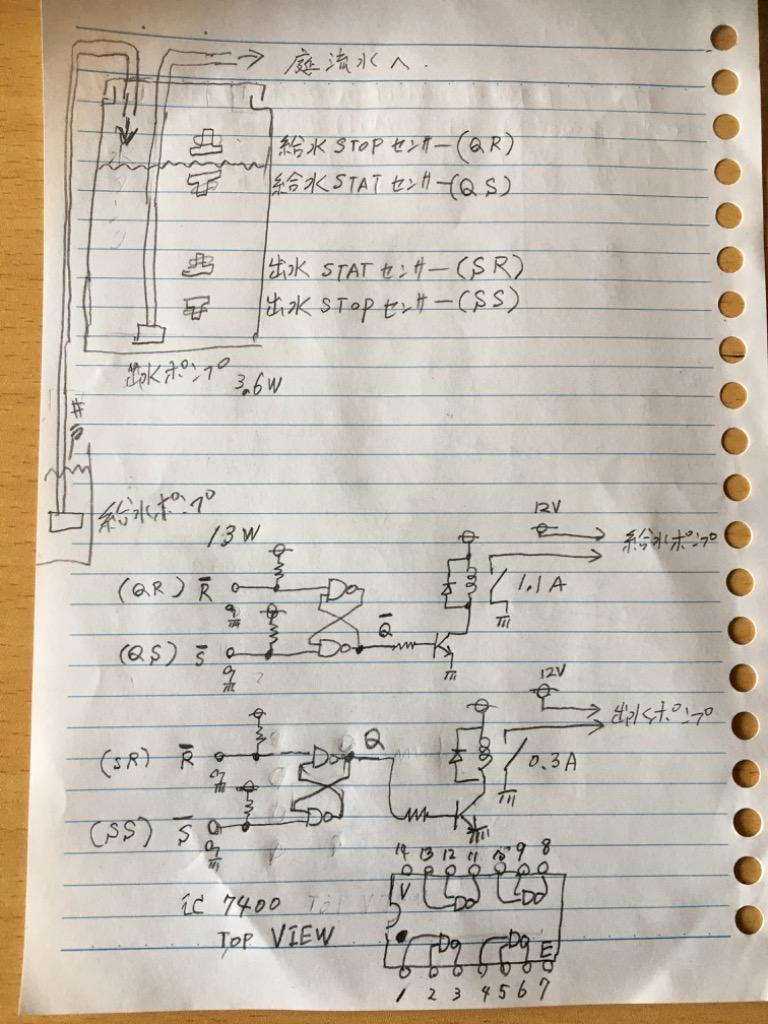 庭流水へ.
給水STOPセンサー(QR)
給水STATセンサー(QS)
出水STATセンサー(SR)
出水STOPセンサー(SS)
出水ポンプ 3.6W
井戸
給水ポンプ
13W
12V
給水ポンプ
(QR) R̅
1.1A
(QS) S̅
Q̅
12V
出水ポンプ
(SR) R̅
Q
0.3A
(SS) S̅
14 13 12 11 10 9 8
V
ic 7400
TOP VIEW
E
1 2 3 4 5 6 7